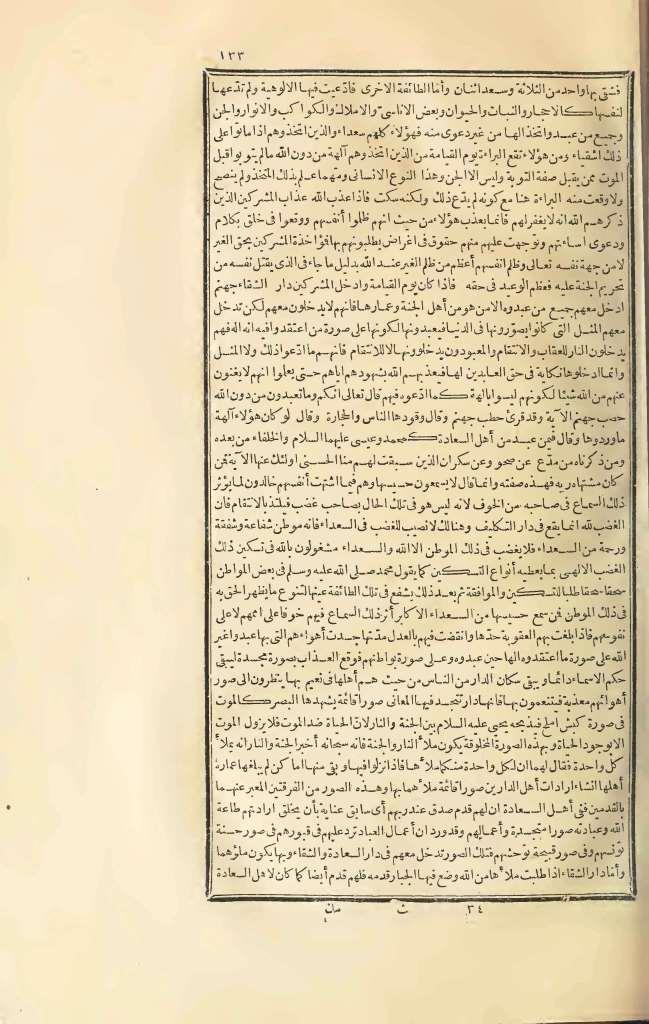 ١٣٣
فشقى بها واحد من الثلاثة وسعد اثنان وأما الطائفة الاخرى فادّعيت فيها الالوهية ولم تدّعها
لنفسها كالاحجار والنبات والحيوان وبعض الاناسى والاملاك والكواكب والانوار والجن
وجميع من عبد واتخذ الها من غير دعوى منه فهؤلاء كلهم سعداء والذين اتخذوهم اذا ماتوا على
ذلك اشقياء ومن هؤلاء تقع البراءة يوم القيامة من الذين اتخذوهم آلهة من دون الله مالم يتوبوا قبل
الموت ممن يقبل صفة التوبة وليس الا الجن وهذا النوع الانسانى ومهما علم بذلك المتخذ ولم ينصح
ولا وقعت منه البراءة هنا مع كونه لم يدّع ذلك ولكنه سكت فاذا عذب الله عذاب المشركين الذين
ذكرهم الله انه لا يغفر لهم فانما يعذب هؤلاء من حيث انهم ظلموا أنفسهم ووقعوا فى خلق بكلام
ودعوى اساءتهم وتوجهت عليهم منهم حقوق فى اغراض يطلبونهم بها فؤاخذة المشركين بحق الغير
لا من جهة نفسه تعالى وظلم انفسهم أعظم من ظلم الغير عند الله بدليل ما جاء فى الذى يقتل نفسه من
تحريم الجنة عليه فعظم الوعيد فى حقه فاذا كان يوم القيامة وادخل المشركين دار الشقاء جهنم
ادخل معهم جميع من عبدوه الا من هو من أهل الجنة وعمارها فانهم لا يدخلون معهم لكن تدخل
معهم المثل التى كانوا يصوّرونها فى الدنيا فيعبدونها لكونها على صورة من اعتقدوا فيه انه اله فهم
يدخلون النار للعقاب والانتقام والمعبودون يدخلونها لا للانتقام فانهم ما ادّعوا ذلك ولا المثل
وانما ادخلوها نكاية فى حق العابدين لها فيعذبهم الله بشهودهم اياهم حتى يعلموا انهم لا يغنون
عنهم من الله شيئا لكونهم ليسوا بآلهة كما ادّعوه فيهم قال تعالى انكم وما تعبدون من دون الله
حصب جهنم الآية وقد قرئ حطب جهنم وقال وقودها الناس والحجارة وقال لو كان هؤلاء آلهة
ما وردوها وقال فيمن عبد من أهل السعادة كمحمد وعيسى عليهما السلام والخلفاء من بعده
ومن ذكرناه من مدّع عن صحو وعن سكر ان الذين سبقت لهم منا الحسنى اولئك عنها الآية فمن
كان مشتهاد ربه فهذه صفته وانما قال لا يسمعون حسيسها وهم فيما اشتهت أنفسهم خالدون لما يؤثر
ذلك السماع فى صاحبه من الخوف لانه ليس هو فى تلك الحال بصاحب غضب فيلتذ بالانتقام فان
الغضب لله انما يقع فى دار التكليف وهنالك لا نصيب للغضب فى السعداء فانه موطن شفاعة وشفقة
ورحمة من السعداء فلا يغضب فى ذلك الموطن الا الله والسعداء مشغولون بالله فى تسكين ذلك
الغضب الالهى بما يعطيه أنواع التسكين كما يقول محمد صلى الله عليه وسلم فى بعض المواطن
سحقا سحقا طلبا للتسكين والموافقة ثم بعد ذلك يشفع فى تلك الطائفة عينها لتنوّع ما يظهر الحق به
فى ذلك الموطن فمن سمع حسيسها من السعداء الاكابر أثر ذلك السماع فيهم خوفا على اممهم لا على
نفوسهم فاذا بلغت بهم العقوبة حدّها وانقضت فيهم بالعدل مدّتها جسدت أهواءهم التى بها عبدوا غير
الله على صورة ما اعتقدوه الها حين عبدوه وعلى صورة بواطنهم فوقع العذاب بصورة مجسدة ليبقى
حكم الاسماء دائما ويبقى سكان الدار من الناس من حيث هم أهلها فى نعيم بها ينظرون الى صور
أهوائهم معذبة فيتنعمون بها فانها دار تتجسد فيها المعانى صورا قائمة يشهدها البصر كالموت
فى صورة كبش املح فيذبحه يحيى عليه السلام بين الجنة والنار لان الحياة ضد الموت فلا يزول الموت
الا بوجود الحياة وبهذه الصورة المخلوقة يكون ملأ النار والجنة فانه سبحانه أخبر الجنة والنار انه يملأ
كل واحدة فقال لهما ان لكل واحدة منكما ملأها فاذا نزلوا فيها وبقى منها اماكن لم يبلغها عمارة
أهلها انشاء ارادات أهل الدارين صورا قائمة ملأهما بها وهذه الصور من الفرقتين المعبر عنها
بالقدمين ففى أهل السعادة ان لهم قدم صدق عند ربهم أى سابق عناية بأن يخلق ارادتهم طاعة
الله وعبادته صورا متجسدة وأعمالهم وقد ورد ان أعمال العباد ترد عليهم فى قبورهم فى صور حسنة
تؤنسهم وفى صور قبيحة توحشهم فتلك الصور تدخل معهم فى دار السعادة والشقاء وبها يكون ملؤهما
وأما دار الشقاء اذا طلبت ملأها من الله وضع فيها الجبار قدمه فلهم قدم أيضا كما كان لاهل السعادة
٣٤ ث